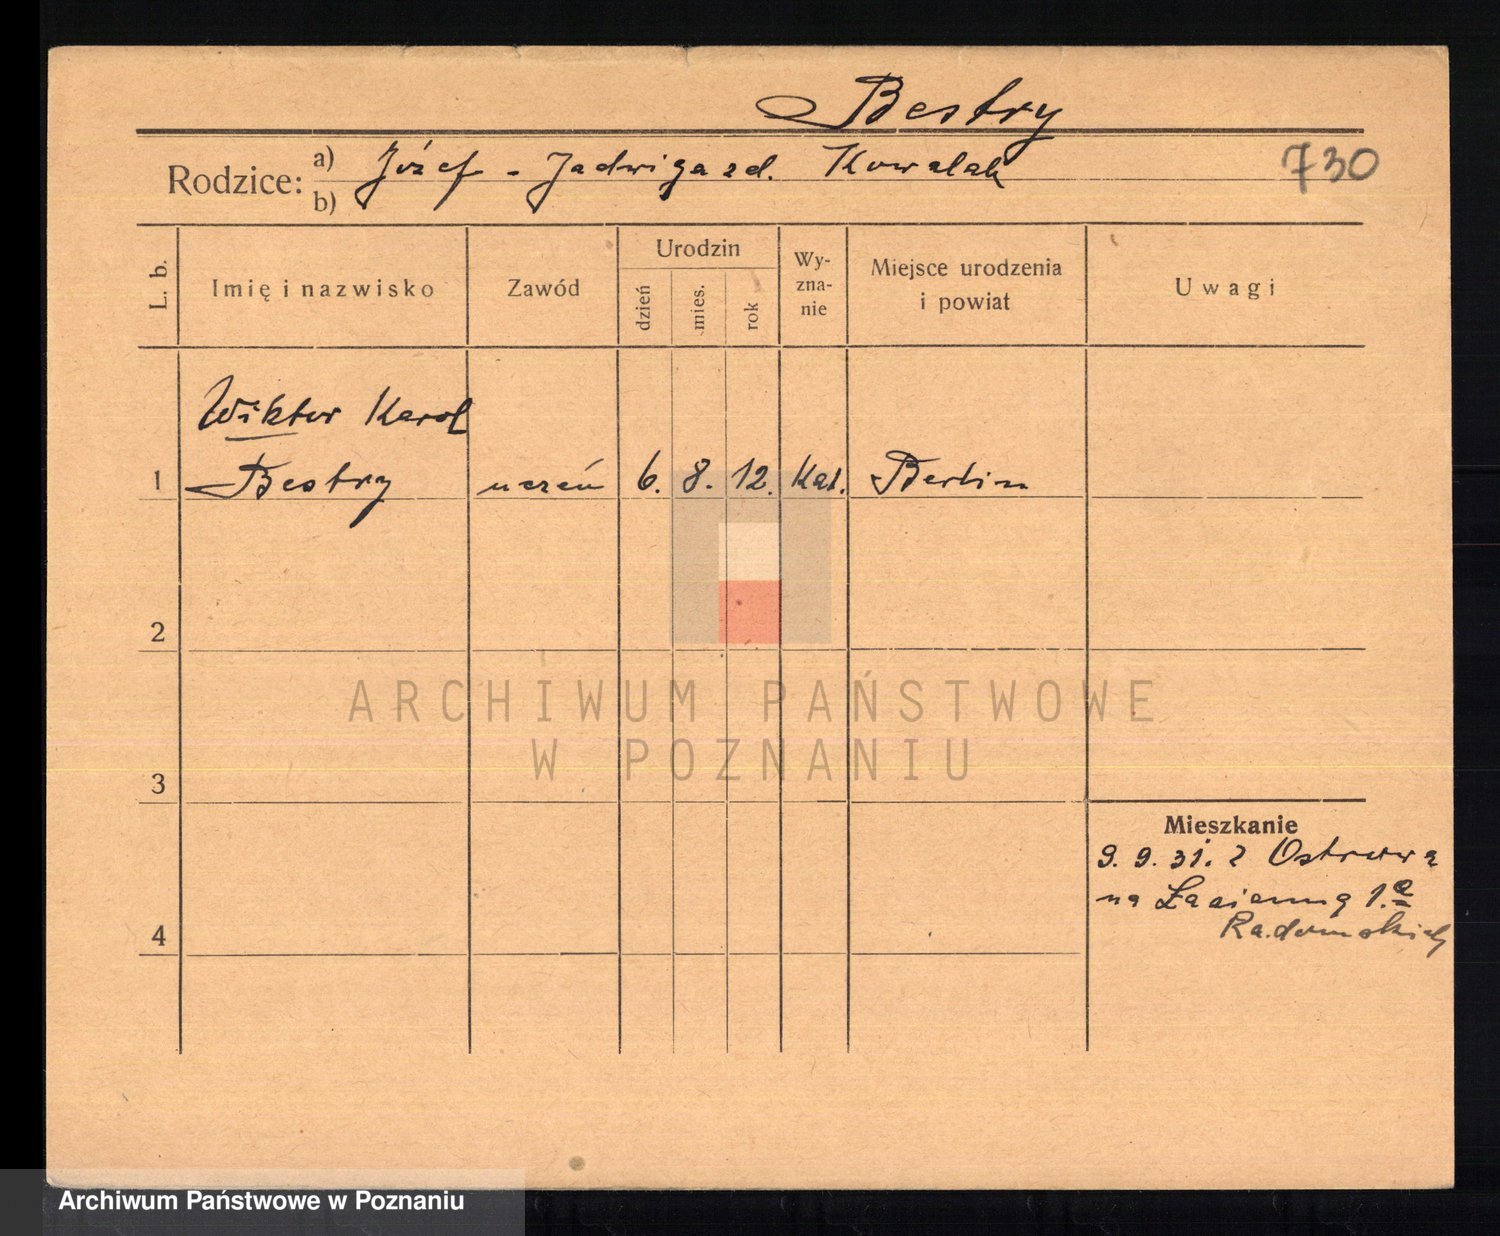 Bestry
Rodzice: a) Józef - Jadwiga zd. Kowalak
b)
730
L. b.
Imię i nazwisko
Zawód
Urodzin
dzień
mies.
rok
Wy-
zna-
nie
Miejsce urodzenia
i powiat
Uwagi
Wiktor Karol
1 Bestry uczeń 6. 8. 12. Kat. Berlin
2
3
4
Mieszkanie
9. 9. 31. z Ostrowa
na Łacienną 1.a
Radomskich
ARCHIWUM PAŃSTWOWE
W POZNANIU
Archiwum Państwowe w Poznaniu